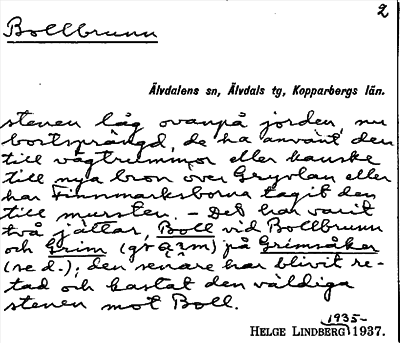 2
Bollbrunn
Älvdalens sn, Älvdals tg, Kopparbergs län.
stenen låg ovanpå jorden, nu
bortsprängd, de ha använt den
till vägtrummor eller kanske
till nya bron över Gryvlan eller
har Finnmarksborna tagit den
till mursten. – Det har varit
två jättar, Boll vid Bollbrunn
och Grim (grim) på Grimsåker
(se d.); den senare har blivit re-
tad och kastat den väldiga
stenen mot Boll.
1935-
HELGE LINDBERG 1937.